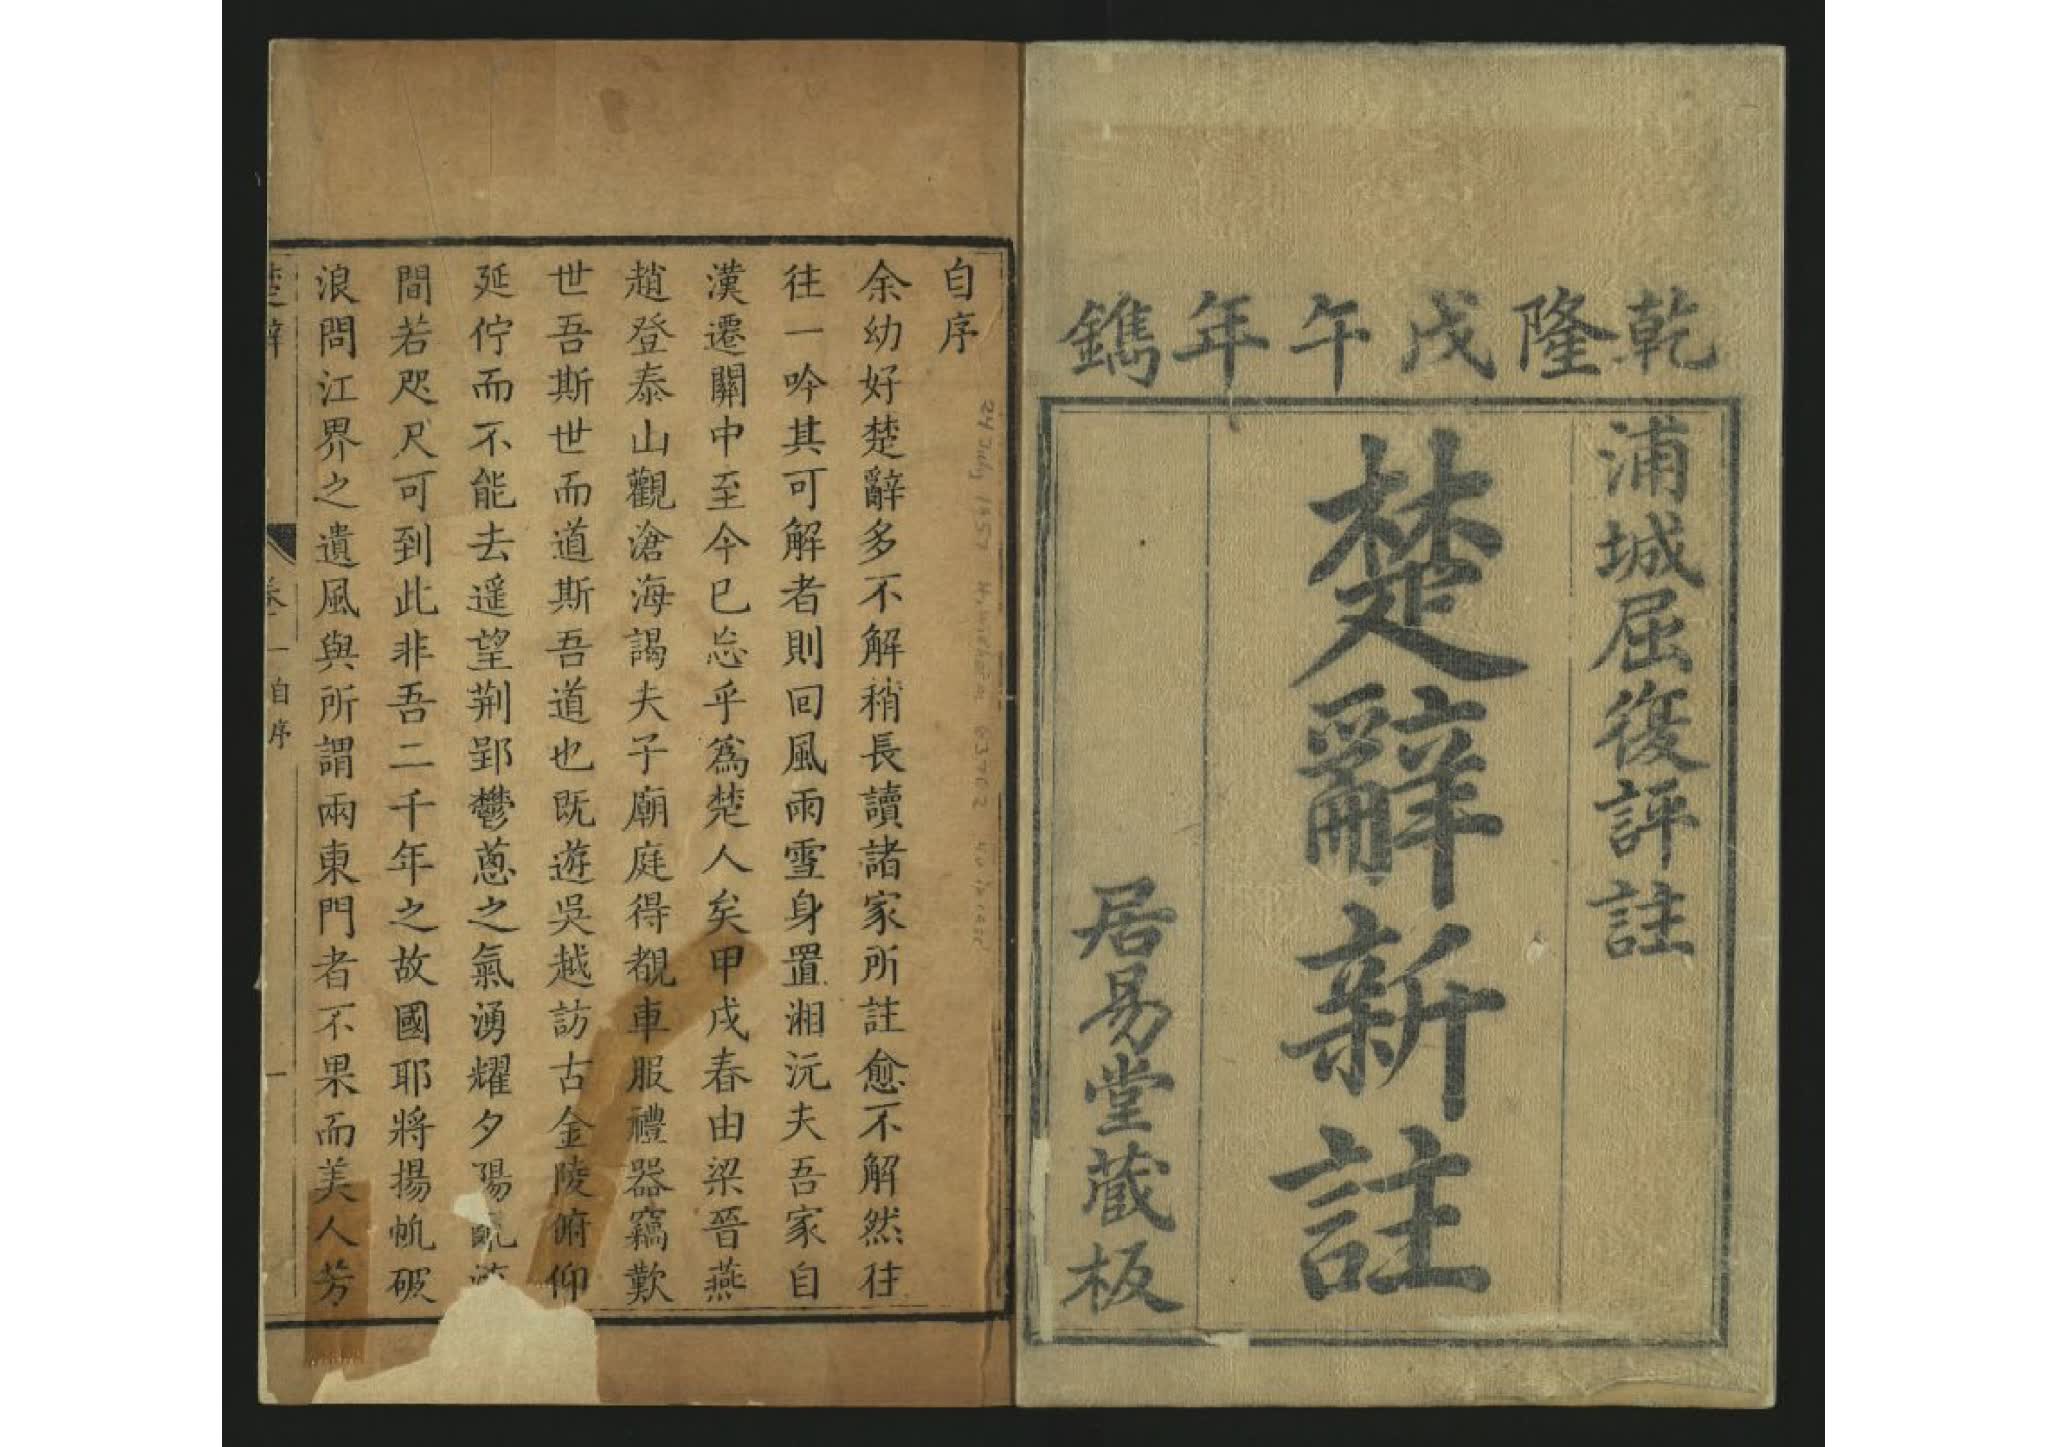 乾隆戊午年鐫
浦城屈復評註
楚辭新註
居易堂蔵板
自序
余幼好楚辭多不解稍長讀諸家所註愈不解然往
往一吟其可解者則回風雨雪身置湘沅夫吾家自
漢遷關中至今已忘乎為楚人矣甲戌春由梁晉燕
趙登泰山觀滄海謁夫子廟庭得覩車服禮器竊歎
世吾斯世而道斯吾道也既遊吳越訪古金陵俯仰
延佇而不能去遥望荆郢鬱蔥之氣湧耀夕陽
間若咫尺可到此非吾二千年之故國耶將揚帆破
浪問江界之遺風與所謂兩東門者不果而美人芳
楚辭
卷一 自序
一